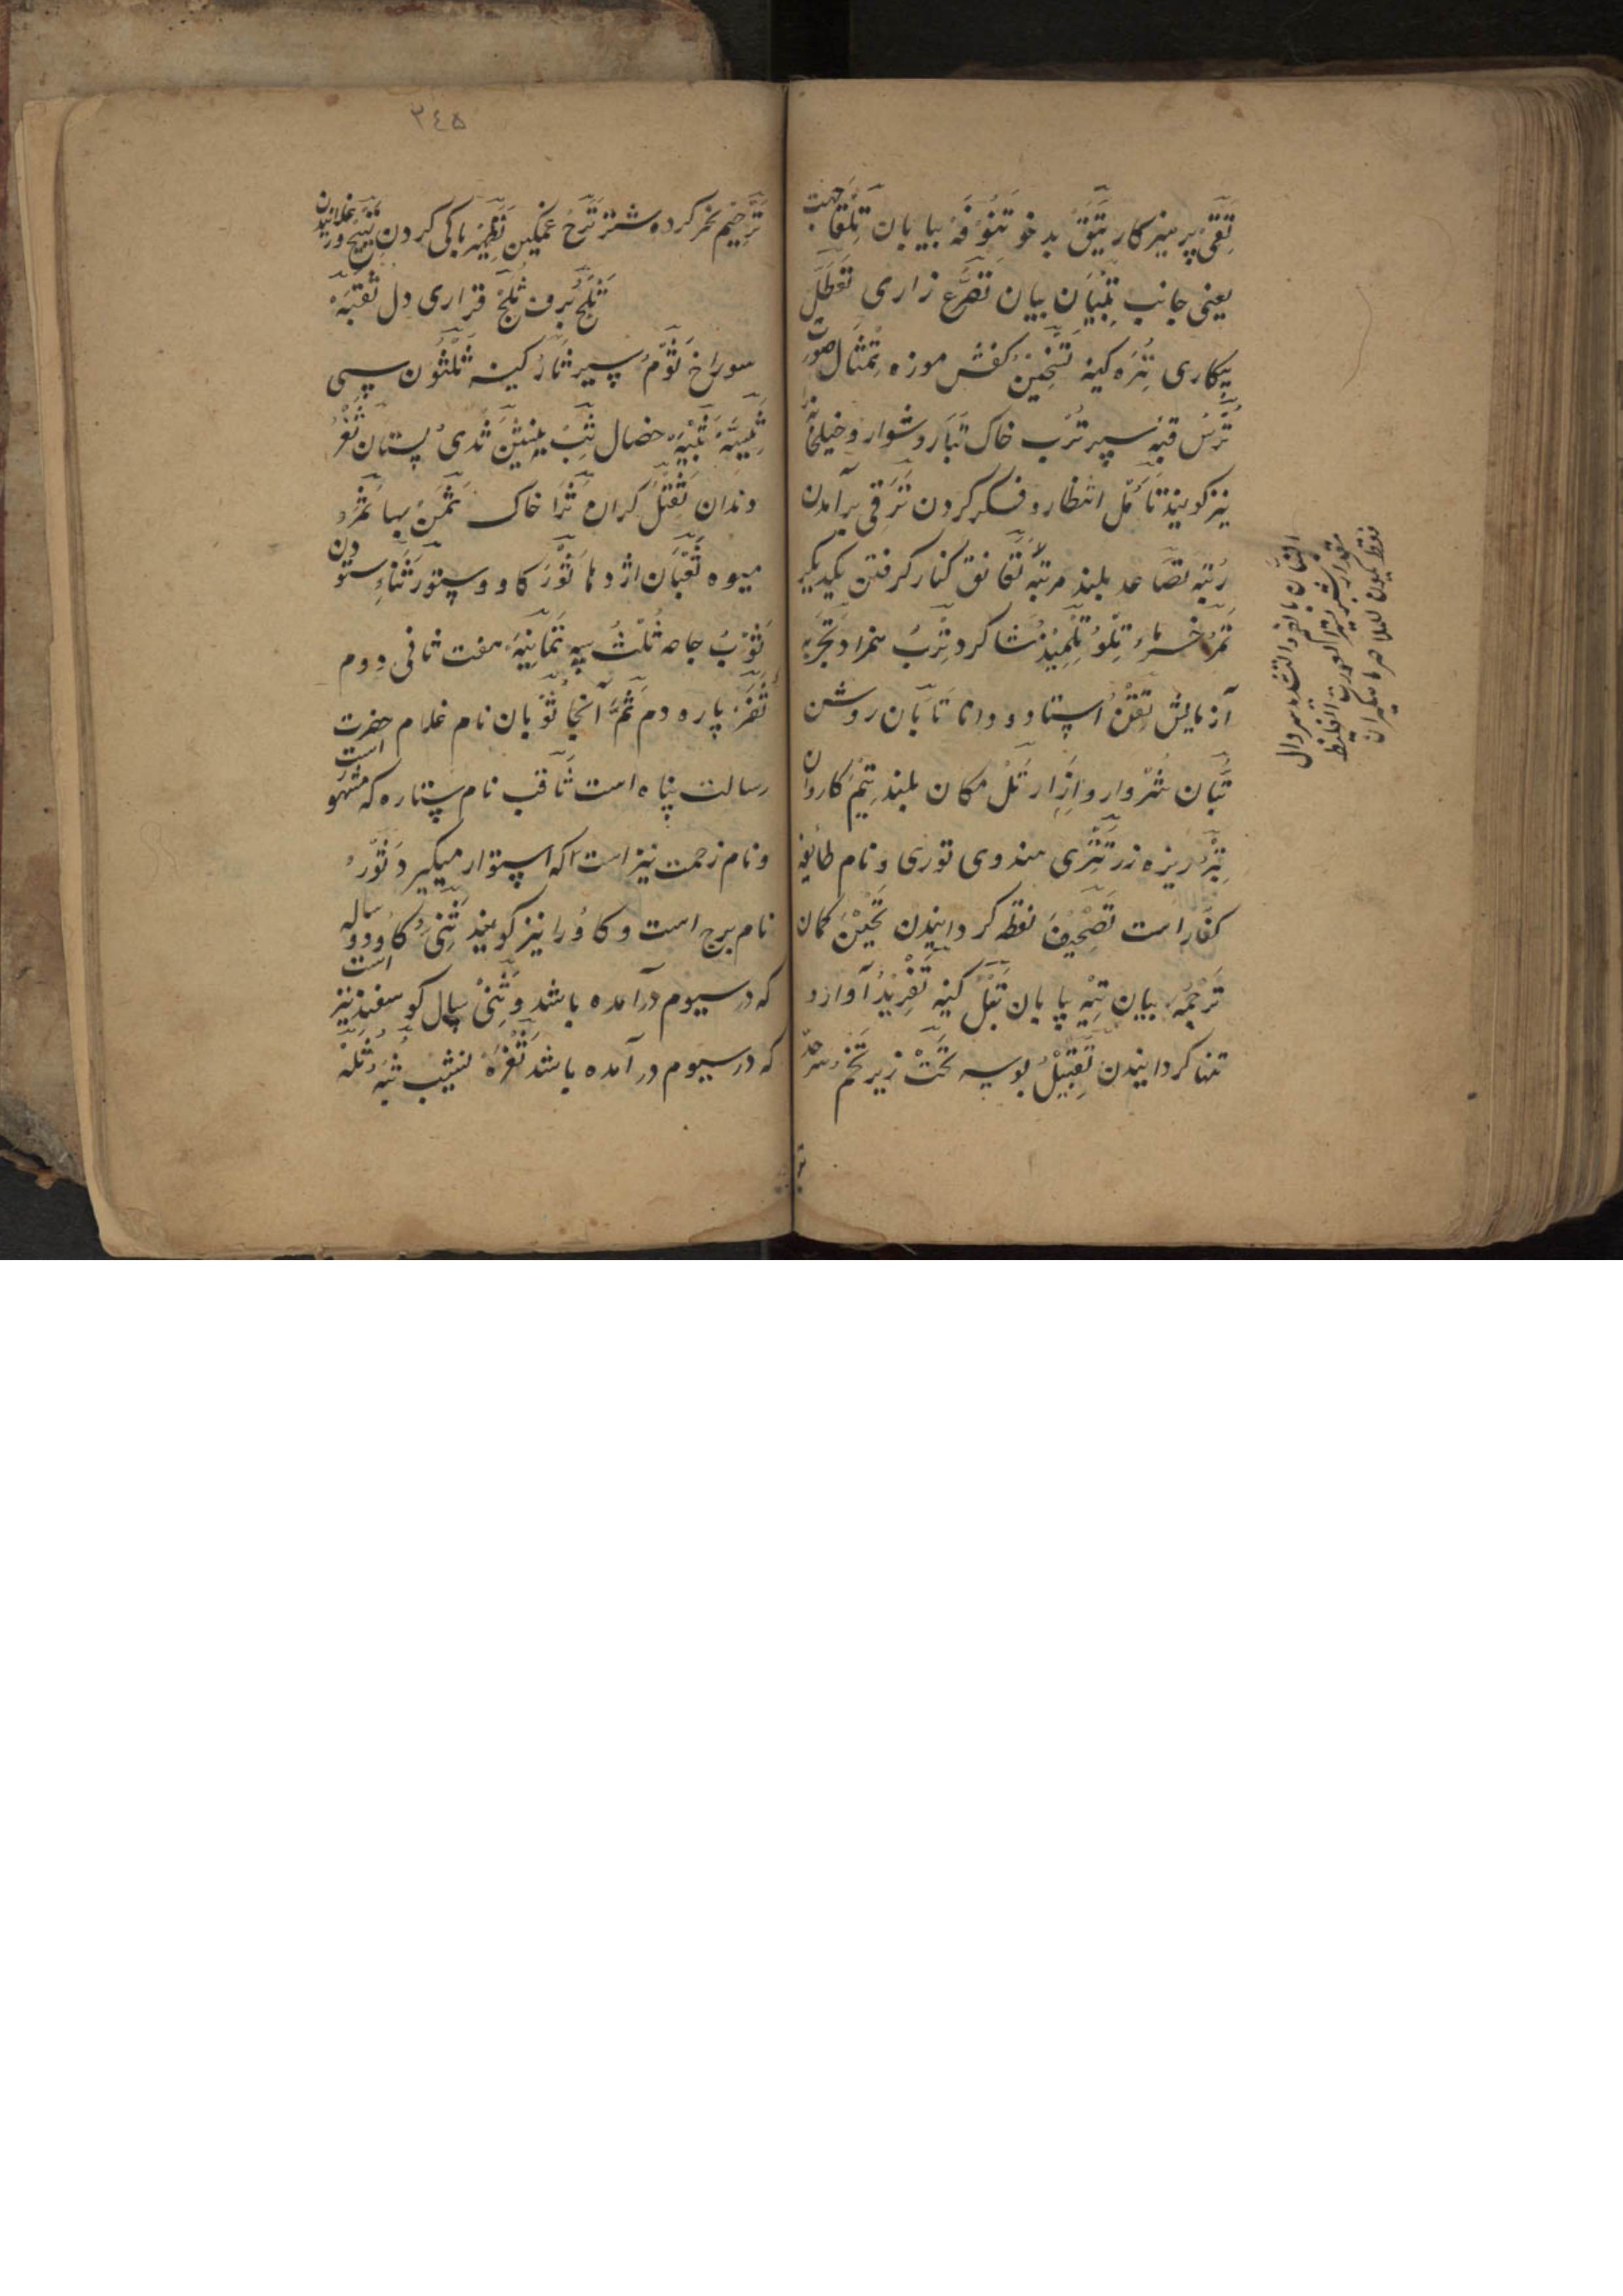 تَقِیّ پرهیزکار تَیَّق بدخو تَنُوفَه بیابان تِلْقَا جهت
یعنی جانب تِبْیَان بیان تَضَرُّع زاری تَعَطُّل
بیکاری تِرَه کینه تَسْخِیْن کفش موزه تِمْثَال صورت
تُرْس قبه سپر تُرَب خاک تَبَار دشوار و خیلخانه
نیز کویند تَأَمُّل انتظار و فکر کردن تَرَقِّی برآمدن
رُتبه تَصَاعد بلند مرتبه تَعَانق کنار کرفتن یکدیکر
تَمْر خرما تِلْوُ تِلْمِیْذ شاکرد تِرْبُ همزاد تَجْرِبَه
آزمایش تِقْن استاد و دانا تَابَان روشن
تُبَّان شروار و اِزار تَلّ مکان بلند تِیْم کاروان
تِبْر ریزه زر تَتَرِی هندوی توری و نام طایفه
کفار است تَصْحِیْف نقطه کردانیدن تَخْمِیْن کمان
تَرْجَمَه بیان تِیْه بیابان تَبْل کینه تَفْرِیْد آواز و
تنها کردانیدن تَقْبِیْل بوسه تَحْت زیر تَخْم سرحد
التبان بالضم والتشدید سروال
مقدار شبر یستر العورت الغلیظ
فقط یکون للملاحین
۳۴۵
تَرْخِیْم نحر کرده شتر تَرَح غمکین تَطْهِیْر پاکی کردن
ثَلْج برف ثَلَج قراری دل ثُقْبَه
سوراخ ثَوْم سیر ثَار کینه ثَلَثُون سی
خصال ثَدْی پستان ثَغْر
دندان ثَقِیْل کران ثَرَا خاک ثَمَن بها ثَمَر
میوه ثُعْبَان اژدها ثَوْر کاو و ستور ثَنَاء ستودن
ثَوْب جامه ثُلْث سه ثَمَانِیَه هفت ثانی دوم
ثَفَر پاره دم ثَمَّ آنجا ثَوْبان نام غلام حضرت
رسالت پناه است ثَاقب نام ستاره که مشهور است
و نام زحمت نیز است که استوار میکیرد ثَوْر
نام برج است و کاو را نیز کویند ثَنِیّ کاو دو ساله
که در سیوم درآمده باشد و ثَنِیّ سال کوسفند نیز است
که در سیوم درآمده باشد ثُغْرَه نشیب